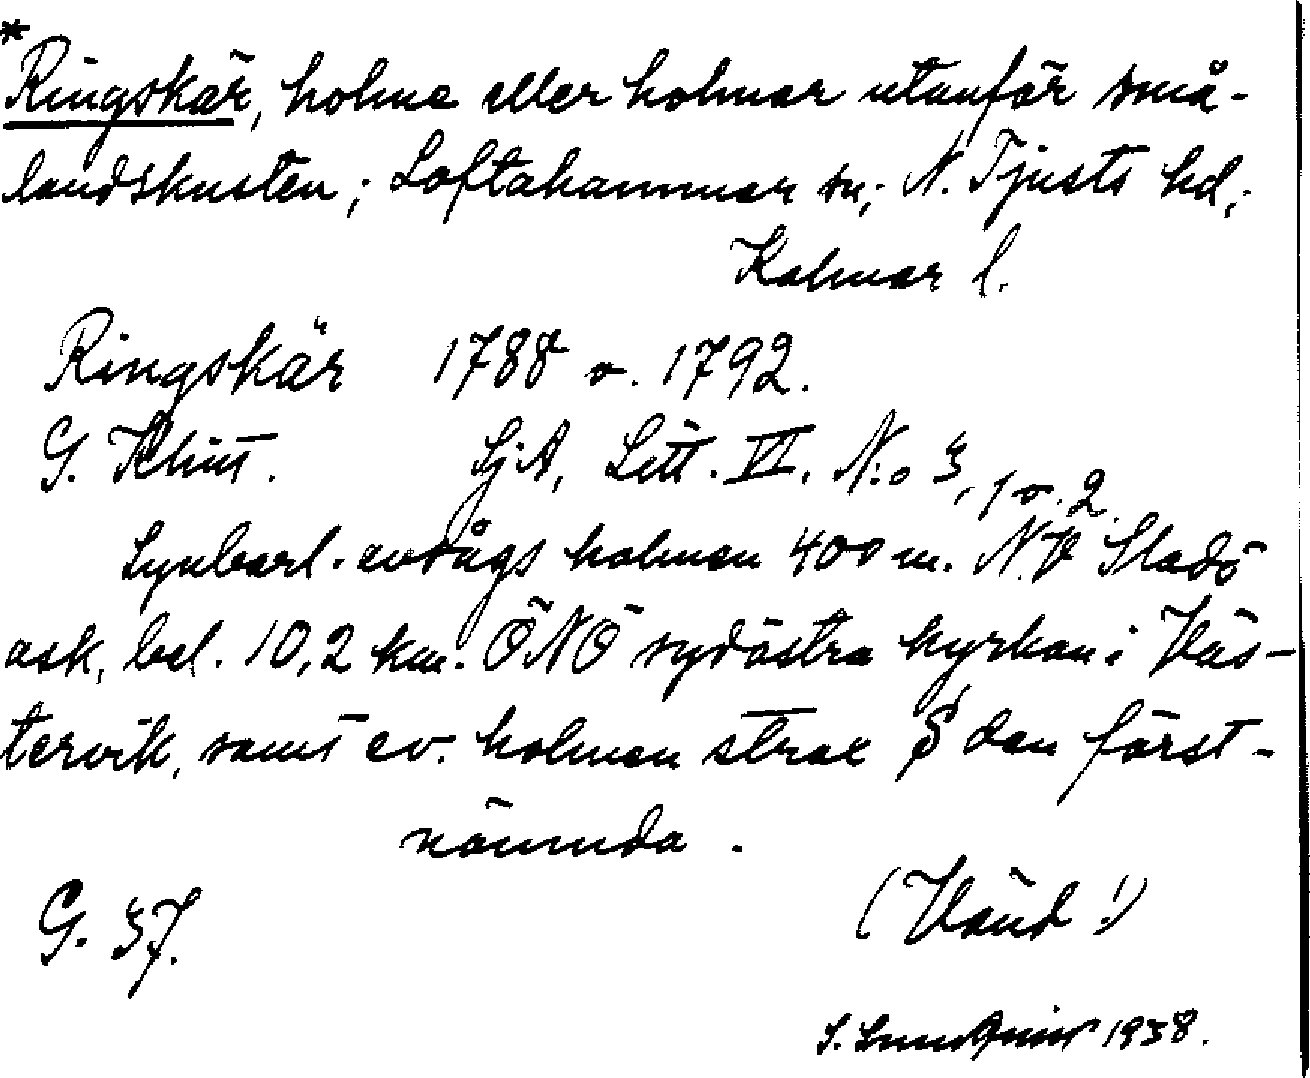 *
Ringskär, holme eller holmar utanför små-
landskusten; Loftahammar sn; N. Tjusts hd;
Kalmar l.
Ringskär 1788 o. 1792.
G. Klint. SjA, Litt. VI. N:o 3, 1 o. 2.
Synbarl. endågs holmen 400 m. NV Sladö
ask, bel. 10,2 km. ÖNÖ sydöstra kyrkan i Väs-
tervik, samt ev. holmen strax S den först-
nämnda.
G. 37. (Vänd!)
S. 1938.